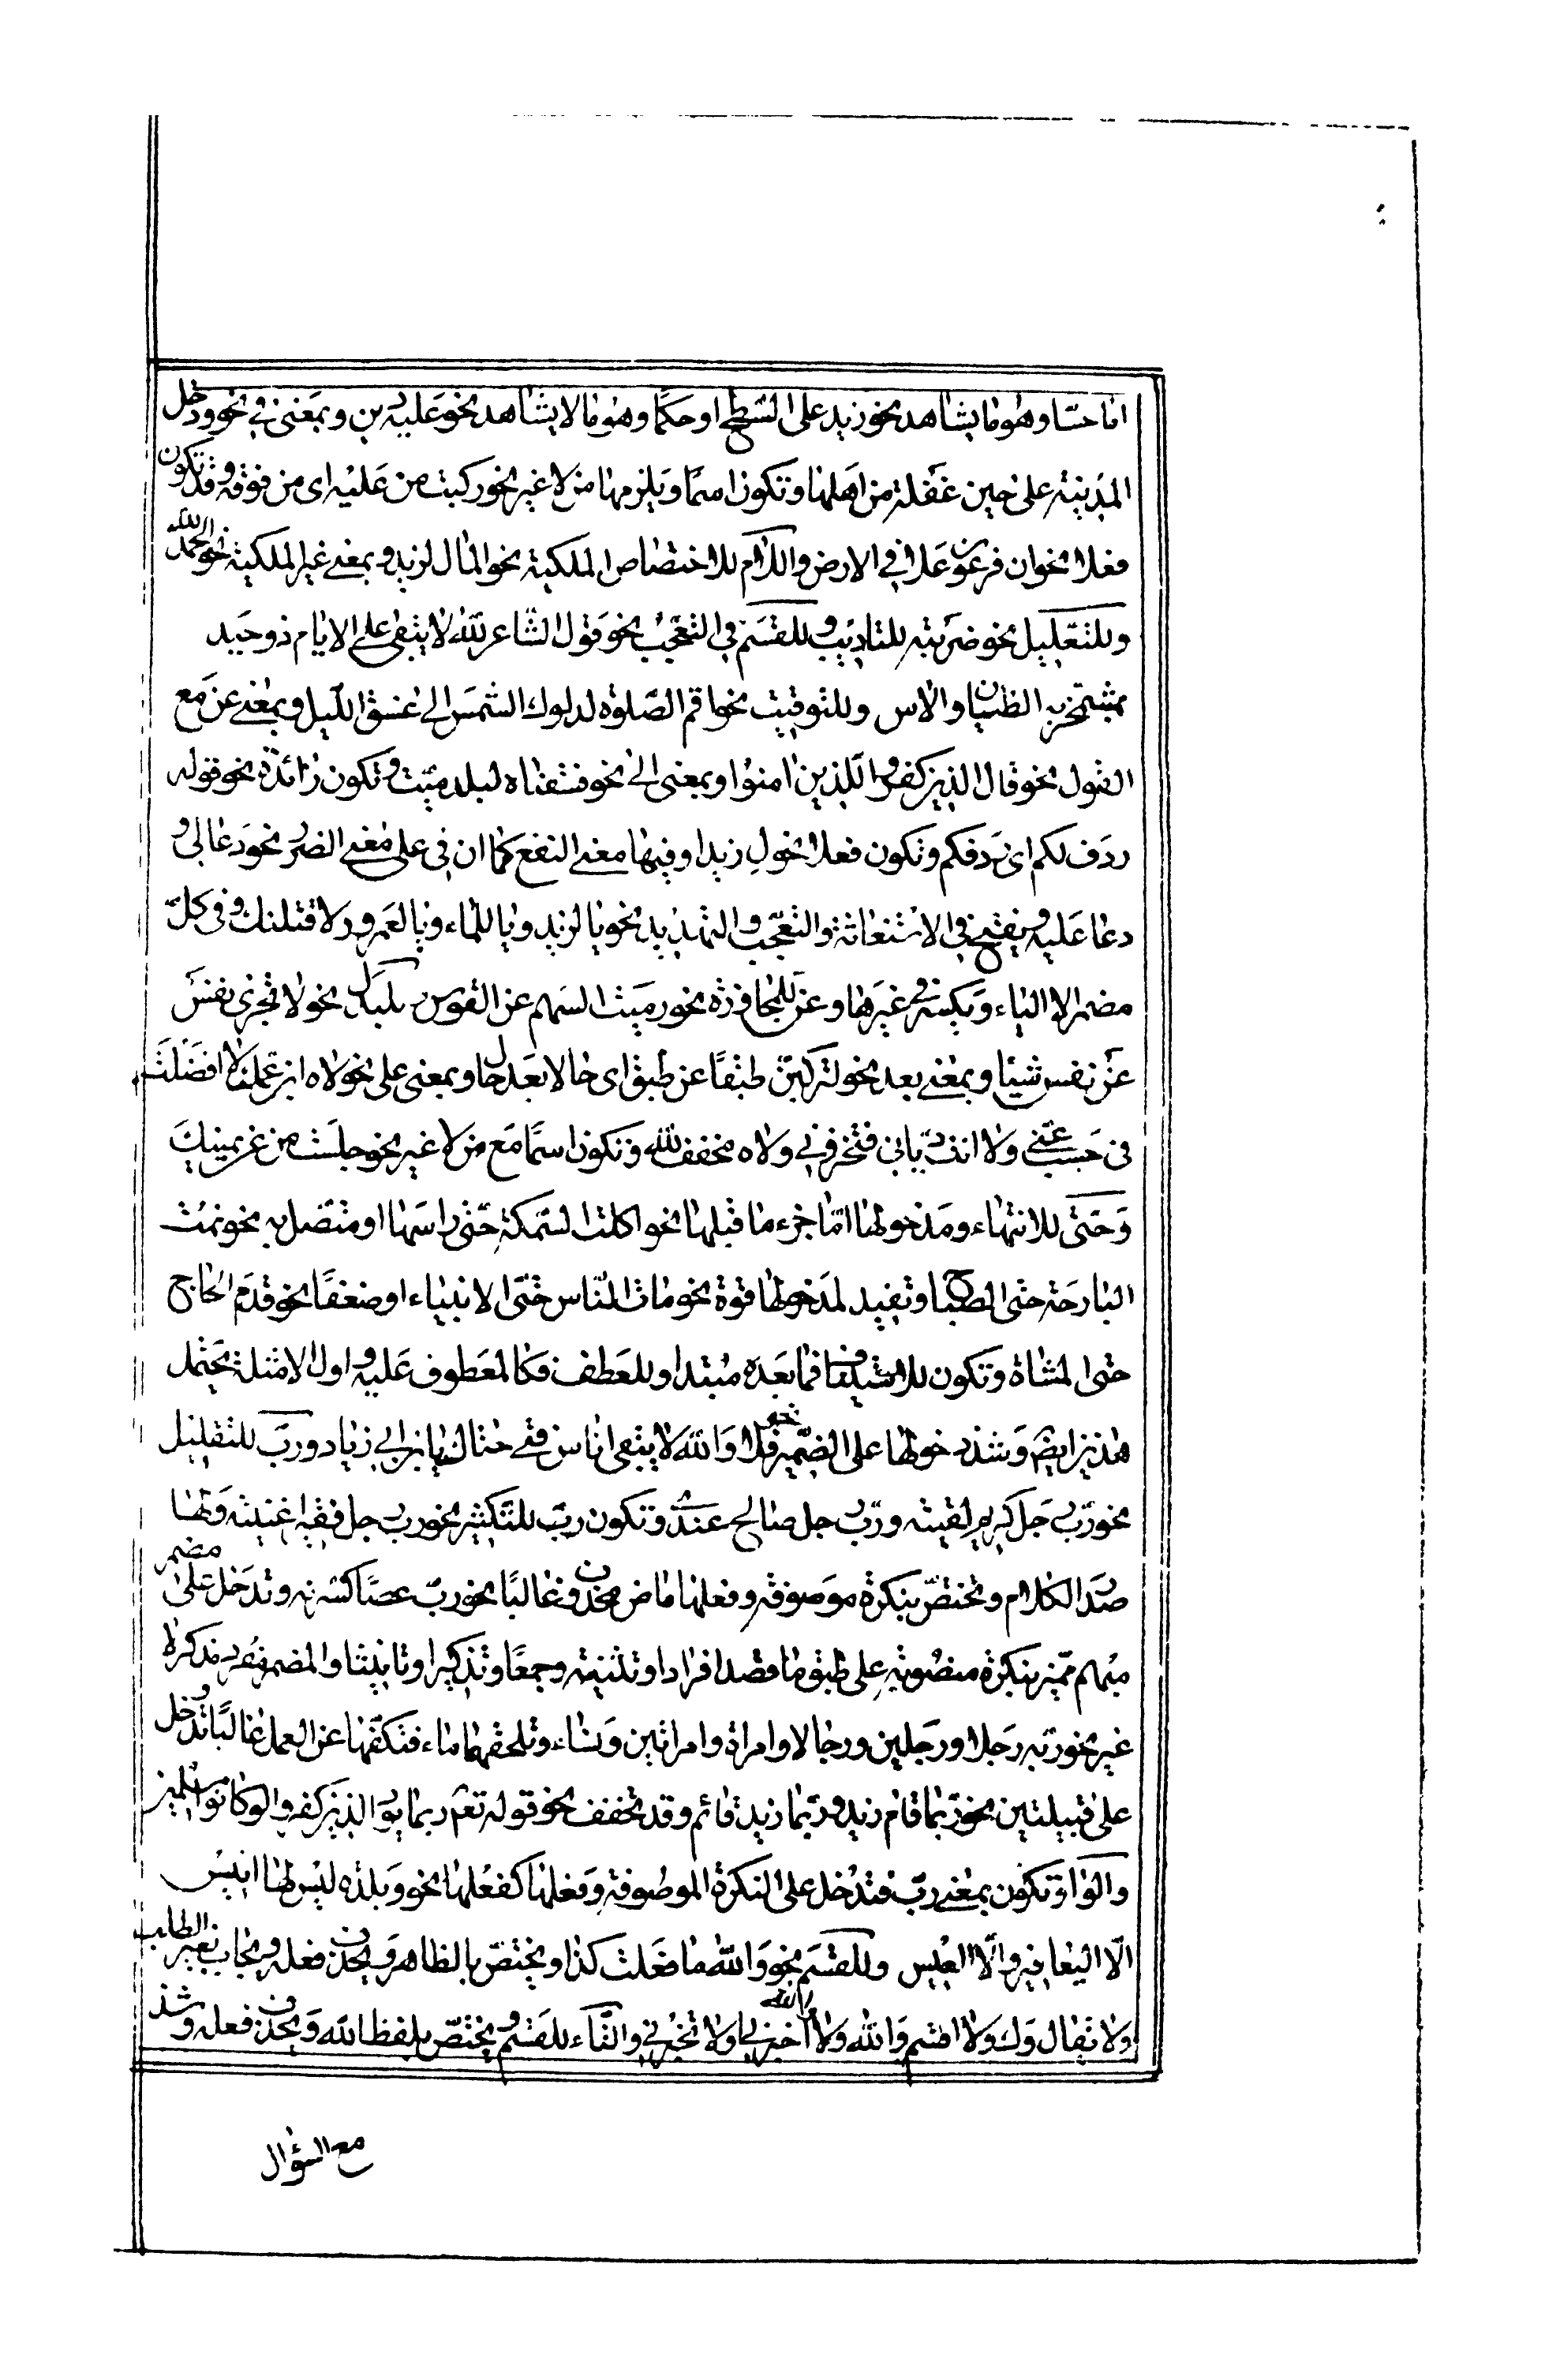 اما حسّا وهو ما يشاهد نحو زيد على السّطح او حكمًا وهو ما لا يشاهد نحو عليه دين وبمعنى فى نحو ودخل
المدينة على حين غفلة من اهلها وتكون اسمًا ويلزمها من لا غير نحو ركبت من عليه اى من فوقه وقد تكون
فعلا نحو ان فرعون علا فى الارض واللام للاختصاص الملكية نحو المال لزيد وبمعنى غير الملكية نحو الحمد لله
وللتعليل نحو ضربته للتاديب وللقسم فى التعجّب نحو قول الشاعر لله لا يبقى على الايام ذو حيد
بمشمخرّ به الظيان والاس وللتوقيت نحو اقم الصّلوة لدلوك الشمس الى غسق اللّيل وبمعنى عن مع
القول نحو قال الذين كفروا للّذين امنوا وبمعنى الى نحو فسقناه لبلد ميّت وتكون زائدة نحو قوله
ردف لكم اى ردفكم وتكون فعلا نحو لِ زيدا وفيها معنى النفع كما ان فى على معنى الضرر نحو دعا لى و
دعا عليه ويفتح فى الاستغاثة والتعجّب والتهديد نحو يا لزيد ويا للماء ويا لعمرو لاقتلنك وفى كلّ
مضمر الا الياء ويكسر فى غيرها وعن للمجاوزة نحو رميت السهم عن القوس وللبدل نحو لا تجزى نفس
عن نفس شيئا وبمعنى بعد نحو لتركبنّ طبقًا عن طبق اى حالا بعد حال وبمعنى على نحو لاه ابن عمك لا افضلت
فى حسب عنّى ولا انت ديّانى فتخزونى ولاه مخفف لله وتكون اسمًا مع من لا غير نحو جلست من عن يمينك
وحتى للانتهاء ومدخولها امّا جزء ما قبلها نحو اكلت السّمكة حتّى راسها او متصل به نحو نمت
البارحة حتى الصباح وتفيد لمدخولها قوة نحو مات النّاس حتّى الانبياء او ضعفًا نحو قدم الحاج
حتى المشاة وتكون للاستيناف فما بعده مبتدا وللعطف فكالمعطوف عليه واول الامثلة يحتمل
هذين ايضًا وشذ دخولها على الضّمير نحو فلا والله لا يبقى اناس فتى حتاك يا بن ابى زياد وربّ للتقليل
نحو ربّ رجل كريم لقيته وربّ رجل صالح عندى وتكون ربّ للتكثير نحو رب رجل فقير اغنيته ولها
صدر الكلام وتختصّ بنكرة موصوفة وفعلها ماض محذوف غالبًا نحو ربّ عصًا كسرته وتدخل على مضمر
مبهم مميّز بنكرة منصوبة على طبق ما قصد افرادا وتثنية وجمعًا وتذكيرا وتانيثا والمضمر مفرد مذكر لا
غير نحو ربّه رجلا ورجلين ورجالا وامراة وامراتين ونساء وتلحقها ماء فتكفّها عن العمل غالبًا وتدخل
على قبيلتين نحو ربّما قام زيد وربّما زيد قائم وقد تخفف نحو قوله تعم ربما يودّ الذين كفروا لو كانوا مسلمين
والواو تكون بمعنى ربّ فتدخل على النكرة الموصوفة وفعلها كفعلها نحو وبلدة ليس لها انيس
الّا اليعافير والّا العيس وللقسم نحو والله ما فعلت كذا ويختصّ بالظاهر ويحذف فعله ويجاب بغير الطلب
ولا يقال وك ولا اقسم والله ولا والله اخبرنى ولا تخبرنى والتّاء للقسم ويختصّ بلفظ الله ويحذف فعله وشذ
مع السؤال